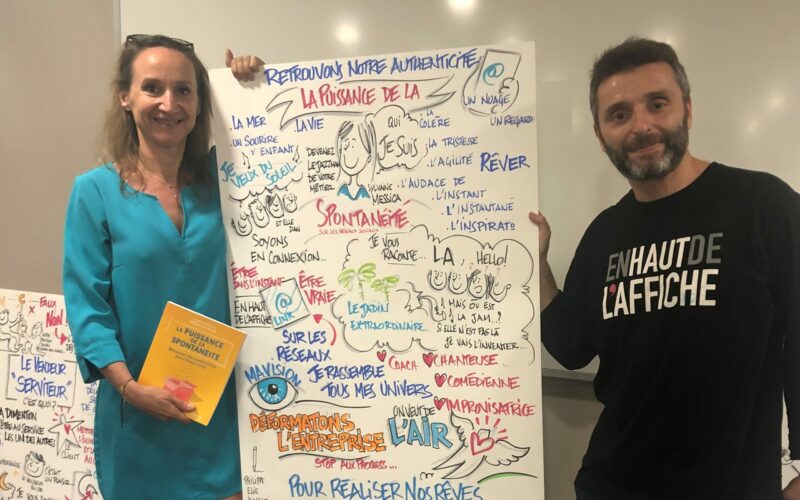 RETROUVONS NOTRE AUTHENTICITÉ
LA PUISSANCE DE LA
@
UN NUAGE
UN REGARD
LA MER
LA VIE
UN SOURIRE
D'ENFANT
JE VEUX DU SOLEIL
DEVENEZ
LE JAZZMAN
DE VOTRE
MÉTIER
QUI
JE SUIS
SYLVAINE
MESSICA
LA
COLÈRE
LA TRISTESSE
L'AGILITÉ
RÊVER
L'AUDACE DE
L'INSTANT
L'INSTANTANÉ
L'INSPIRATO
SPONTANÉITÉ
SUR LES RÉSEAUX SOCIAUX
ET ELLE
SOYONS
EN CONNEXION...
JE VOUS
RACONTE...
LA
HELLO!
A MAIS OU EST
À LA JAM...?
SI ELLE N'EST PAS LÀ
JE VAIS L'INVENTER...
ÊTRE
DANS L'INSTANT
ÊTRE
VRAIE
EN HAUT
DE
L'AFFICHE
@
LINK
LE JARDIN
EXTRAORDINAIRE
SUR LES
RÉSEAUX
JE RASSEMBLE
TOUS MES UNIVERS
COACH
CHANTEUSE
COMÉDIENNE
IMPROVISATRICE
MA VISION
DÉFORMATIONS
L'ENTREPRISE
ON VEUT DE
L'AIR
STOP AUX PROCESS...
POUR RÉALISER NOS RÊVES
PHILIPPE
LA PUISSANCE
DE LA
SPONTANÉITÉ
EN HAUT DE
L'AFFICHE
FAUX
NON!
LE VENDEUR
"SERVITEUR"
C'EST QUOI?
LA DIMENTION
ÊTRE AU SERVICE
LES UNS DE AUTRES
CLIENT